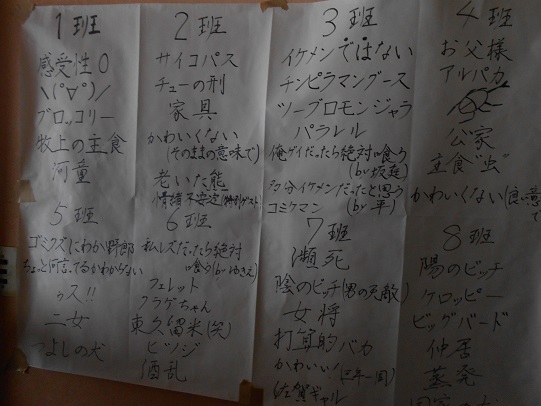 1班
感受性0
\(°∀°)/
ブロッコリー
牧上の主食
河童
2班
サイコパス
チューの刑
家具
かわいくない
(そのままの意味で)
老いた熊
情緒不安定(特別ゲスト)
3班
イケメンではない
チンピラマングース
ツーブロモンジャラ
パラレル
俺ゲイだったら絶対
食う
(by 坂庭)
多分イケメンだったと思う
コミケマン (by 平)
4班
お父様
アルパカ
公家
主食"虫"
かわいくない(良い意
で
5班
ゴミクズにわか野郎
ちょっと何言ってるかわからない
ゥス!!
二女
つよしの犬
6班
私レズだったら絶対
食う(by ゆきえ)
フェレット
クラゲちゃん
東久留米(笑)
ヒツジ
酒乱
7班
瀕死
陰のビッチ(男の天敵)
女将
打算的バカ
かわいい(三年一同)
佐賀ギャル
8班
陽のビッチ
ケロッピー
ビッグバード
仲居
蒸発